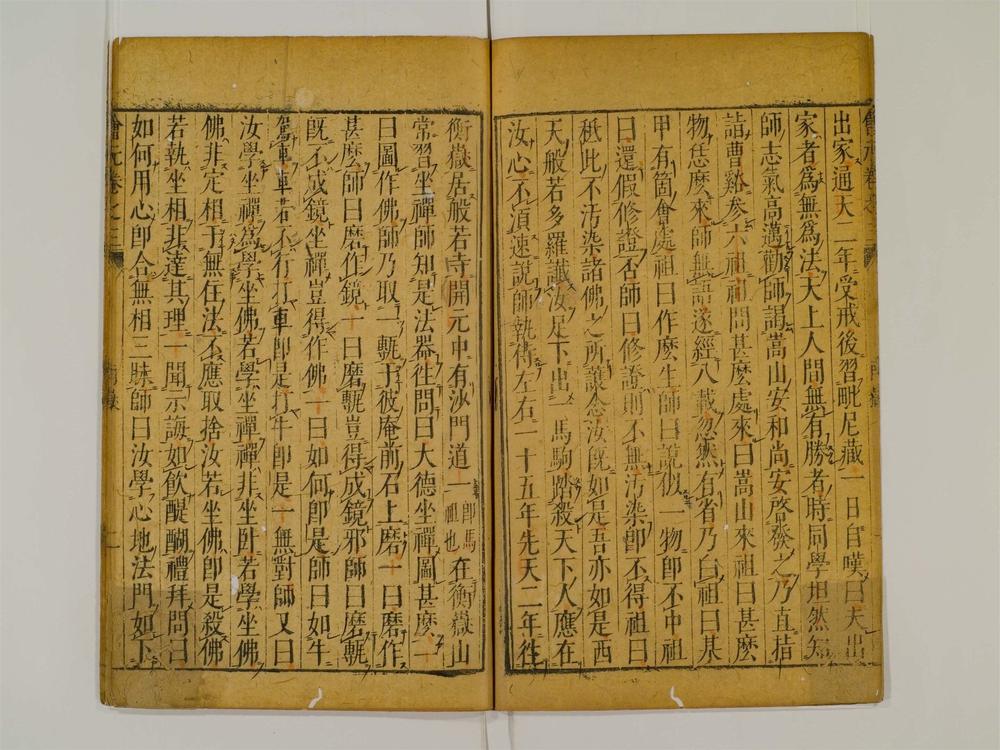 出家通天二年受戒後習毗尼藏一日自嘆曰夫出
家者爲無爲法天上人間無有勝者時同學坦然知
師志氣高邁勸師謁嵩山安和尚安啓發之乃直指
詣曹谿參六祖祖問甚麼處來曰嵩山來祖曰甚麼
物恁麼來師無語遂經八載忽然有省乃白祖曰某
甲有箇會處祖曰作麼生師曰說似一物即不中祖
曰還假修證否師曰修證則不無汚染即不得祖曰
秖此不汚染諸佛之所護念汝既如是吾亦如是西
天般若多羅讖汝足下出一馬駒踏殺天下人應在
汝心不須速說師執侍左右一十五年先天二年往
衡嶽居般若寺開元中有沙門道一即馬祖也在衡嶽山
常習坐禪師知是法器往問曰大德坐禪圖甚麼一
曰圖作佛師乃取一甎于彼庵前石上磨一曰磨作
甚麼師曰磨作鏡一曰磨甎豈得成鏡邪師曰磨甎
既不成鏡坐禪豈得作佛一曰如何即是師曰如牛
駕車車若不行打車即是打牛即是一無對師又曰
汝學坐禪爲學坐佛若學坐禪禪非坐臥若學坐佛
佛非定相于無住法不應取捨汝若坐佛即是殺佛
若執坐相非達其理一聞示誨如飲醍醐禮拜問曰
如何用心即合無相三昧師曰汝學心地法門如下
會元卷之三